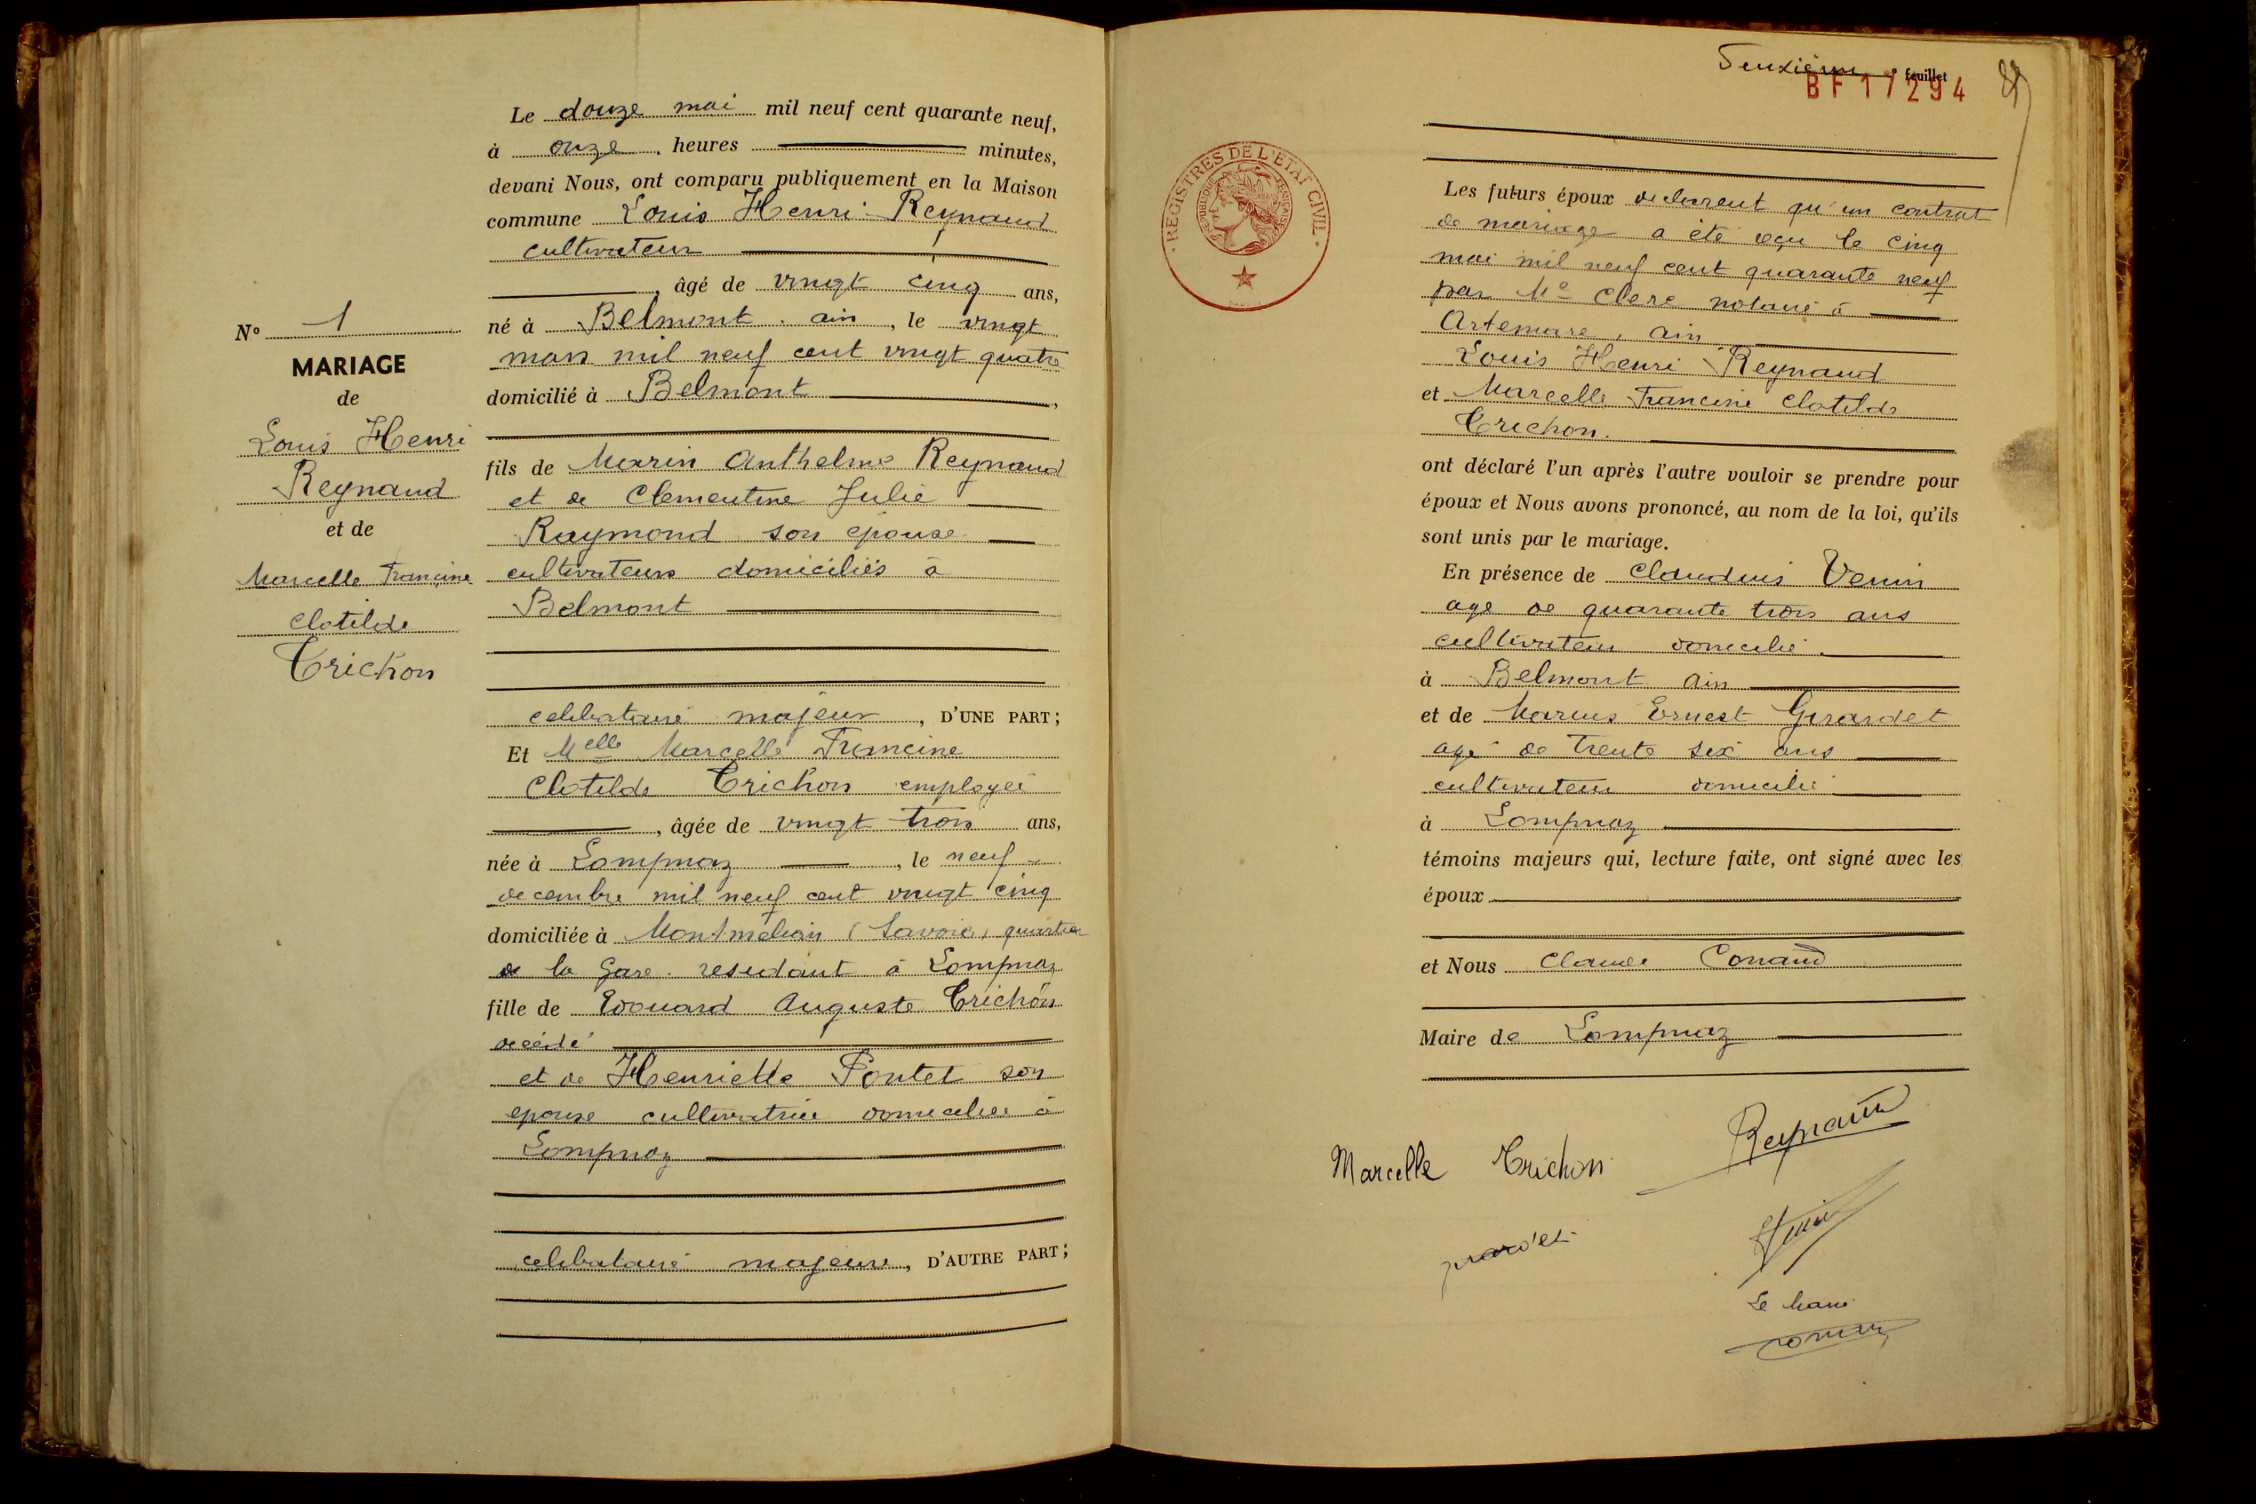 Le douze mai mil neuf cent quarante neuf,
à onze heures minutes,
devant Nous, ont comparu publiquement en la Maison
commune Louis Henri Reynaud
cultivateur
, âgé de vingt cinq ans,
né à Belmont. ain, le vingt
mars mil neuf cent vingt quatre
domicilié à Belmont,
fils de Marin Anthelme Reynaud
et de Clementine Julie
Raymond son épouse
cultivateurs domiciliés à
Belmont
celibataire majeur, D'UNE PART;
Et Melle Marcelle Francine
Clotilde Trichon employée
, âgée de vingt trois ans,
née à Lompnaz, le neuf
decembre mil neuf cent vingt cinq
domiciliée à Montmelian (Savoie) quartier
de la Gare. residant à Lompnaz
fille de Edouard Auguste Trichon
décédé
et de Henriette Pontet son
epouse cultivatrice domiciliée à
Lompnaz
celibataire majeure, D'AUTRE PART;
N° 1
MARIAGE
de
Louis Henri
Reynaud
et de
Marcelle Francine
Clotilde
Trichon
Deuxième e feuillet
BF17294
REGISTRES DE L'ETAT CIVIL
REPUBLIQUE FRANÇAISE
Les futurs époux declarent qu'un contrat
de mariage a été reçu le cinq
mai mil neuf cent quarante neuf
par Me Clerc notaire à
Artemare, ain
Louis Henri Reynaud
et Marcelle Francine Clotilde
Trichon.
ont déclaré l'un après l'autre vouloir se prendre pour
époux et Nous avons prononcé, au nom de la loi, qu'ils
sont unis par le mariage.
En présence de Claudius Venin
age de quarante trois ans
cultivateur domicilié
à Belmont ain
et de Marius Ernest Girardet
agé de trente six ans
cultivateur domicilié
à Lompnaz
témoins majeurs qui, lecture faite, ont signé avec les
époux
et Nous Claude Conand
Maire de Lompnaz
Reynaud
Marcelle Trichon
Le Maire